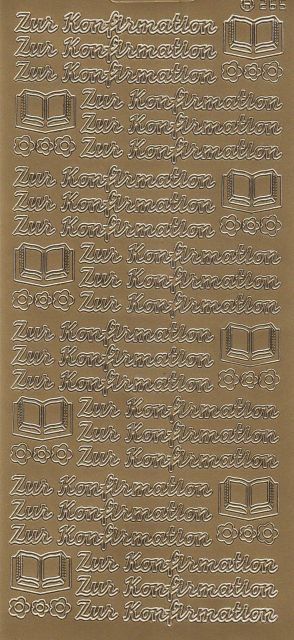 Zur Konfirmation
Zur Konfirmation
Zur Konfirmation
Zur Konfirmation
Zur Konfirmation
Zur Konfirmation
Zur Konfirmation
Zur Konfirmation
Zur Konfirmation
Zur Konfirmation
Zur Konfirmation
Zur Konfirmation
Zur Konfirmation
Zur Konfirmation
Zur Konfirmation
Zur Konfirmation
Zur Konfirmation
Zur Konfirmation
Zur Konfirmation
Zur Konfirmation
Zur Konfirmation
Zur Konfirmation
Zur Konfirmation
Zur Konfirmation